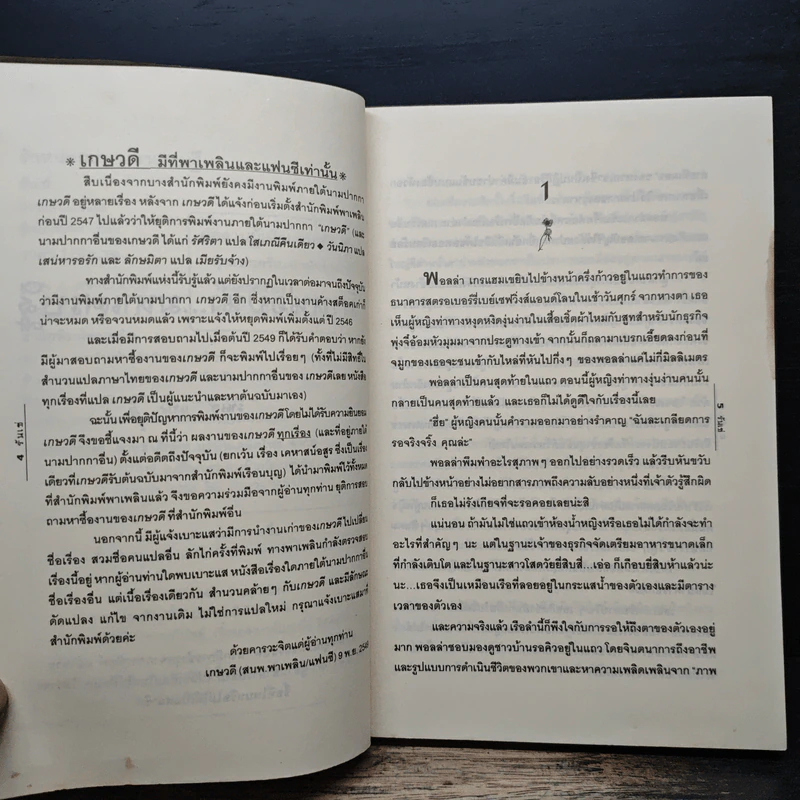 * เกษวดี มีที่พาเพลินและแฟนซีเท่านั้น *
สืบเนื่องจากบางสำนักพิมพ์ยังคงมีงานพิมพ์ภายใต้นามปากกา
เกษวดี อยู่หลายเรื่อง หลังจาก เกษวดี ได้แจ้งก่อนเริ่มตั้งสำนักพิมพ์พาเพลิน
ก่อนปี 2547 ไปแล้วว่าให้ยุติการพิมพ์งานภายใต้นามปากกา "เกษวดี" (และ
นามปากกาอื่นของเกษวดี ได้แก่ รัศริตา แปล โสเภณีคืนเดียว ◆ วันนิภา แปล
เสน่หารอรัก และ ลักษมิตา แปล เมียรับจ้าง)
ทางสำนักพิมพ์แห่งนี้รับรู้แล้ว แต่ยังปรากฏในเวลาต่อมาจนถึงปัจจุบัน
ว่ามีงานพิมพ์ภายใต้นามปากกา เกษวดี อีก ซึ่งหากเป็นงานค้างสต็อคเก่าก็
น่าจะหมด หรือจวนหมดแล้ว เพราะแจ้งให้หยุดพิมพ์เพิ่มตั้งแต่ ปี 2546
และเมื่อมีการสอบถามไปเมื่อต้นปี 2549 ก็ได้รับคำตอบว่า หากยัง
มีผู้มาสอบถามหาซื้องานของเกษวดี ก็จะพิมพ์ไปเรื่อยๆ (ทั้งที่ไม่มีสิทธิ์ใน
สำนวนแปลภาษาไทยของเกษวดี และนามปากกาอื่นของ เกษวดีเลย หนังสือ
ทุกเรื่องที่แปล เกษวดี เป็นผู้แนะนำและหาต้นฉบับมาเอง)
ฉะนั้น เพื่อยุติปัญหาการพิมพ์งานของเกษวดี โดยไม่ได้รับความยินยอม
เกษวดี จึงขอชี้แจงมา ณ ที่นี้ว่า ผลงานของเกษวดี ทุกเรื่อง (และที่อยู่ภายใต้
นามปากกาอื่น) ตั้งแต่อดีตถึงปัจจุบัน (ยกเว้น เรื่อง เคหาสน์อสูร ซึ่งเป็นเรื่อง
เดียวที่เกษวดีรับต้นฉบับมาจากสำนักพิมพ์เรือนบุญ) ได้นำมาพิมพ์ไว้ทั้งหมด
ที่สำนักพิมพ์พาเพลินแล้ว จึงขอความร่วมมือจากผู้อ่านทุกท่าน ยุติการสอบ
ถามหาซื้องานของเกษวดี ที่สำนักพิมพ์อื่น
นอกจากนี้ มีผู้แจ้งเบาะแสว่ามีการนำงานเก่าของเกษวดี ไปเปลี่ยน
ชื่อเรื่อง สวมชื่อคนแปลอื่น ลักไก่ครั้งที่พิมพ์ ทางพาเพลินกำลังตรวจสอบ
เรื่องนี้อยู่ หากผู้อ่านท่านใดพบเบาะแส หนังสือเรื่องใดภายใต้นามปากกาอื่น
ชื่อเรื่องอื่น แต่เนื้อเรื่องเดียวกัน สำนวนคล้ายๆ กับเกษวดี และมีลักษณะ
ดัดแปลง แก้ไข จากงานเดิม ไม่ใช่การแปลใหม่ กรุณาแจ้งเบาะแสมาที่
สำนักพิมพ์ด้วยค่ะ
ด้วยคารวะจิตแด่ผู้อ่านทุกท่าน
เกษวดี (สนพ.พาเพลิน/แฟนซี) 9 พ.ย. 2549
4
1
พอลล่า เกรแฮมเขยิบไปข้างหน้าครึ่งก้าวอยู่ในแถวทำการของ
ธนาคารสตรอเบอร์รี่เบย์เซฟวิ่งส์แอนด์โลนในเช้าวันศุกร์ จากหางตา เธอ
เห็นผู้หญิงท่าทางหงุดหงิดงุ่นง่านในเสื้อเชิ้ตผ้าไหมกับสูทสำหรับนักธุรกิจ
พุ่งจี๋อ้อมหัวมุมมาจากประตูทางเข้า จากนั้นก็ถลามาเบรกเอี๊ยดลงก่อนที่
จมูกของเธอจะชนเข้ากับไหล่ที่หันไปกึ่งๆ ของพอลล่าแค่ไม่กี่มิลลิเมตร
พอลล่าเป็นคนสุดท้ายในแถว ตอนนี้ผู้หญิงท่าทางงุ่นง่านคนนั้น
กลายเป็นคนสุดท้ายแล้ว และเธอก็ไม่ได้ดูดีใจกับเรื่องนี้เลย
"ฮึ่ย" ผู้หญิงคนนั้นคำรามออกมาอย่างรำคาญ "ฉันละเกลียดการ
รอจริงจริ้ง คุณล่ะ"
พอลล่าพึมพำอะไรสุภาพๆ ออกไปอย่างรวดเร็ว แล้วรีบหันขวับ
กลับไปข้างหน้าอย่างไม่อยากสารภาพถึงความลับอย่างหนึ่งที่เจ้าตัวรู้สึกผิด
ก็เธอไม่รังเกียจที่จะรอคอยเลยน่ะสิ
แน่นอน ถ้ามันไม่ใช่แถวเข้าห้องน้ำหญิงหรือเธอไม่ได้กำลังจะทำ
อะไรที่สำคัญๆ นะ แต่ในฐานะเจ้าของธุรกิจจัดเตรียมอาหารขนาดเล็ก
ที่กำลังเติบโต และในฐานะสาวโสดวัยยี่สิบสี่...เอ่อ ก็เกือบยี่สิบห้าแล้วน่ะ
นะ...เธอจึงเป็นเหมือนเรือที่ลอยอยู่ในกระแสน้ำของตัวเองและมีตาราง
เวลาของตัวเอง
และความจริงแล้ว เรือลำนี้ก็พึงใจกับการรอให้ถึงตาของตัวเองอยู่
มาก พอลล่าชอบมองดูชาวบ้านรอคิวอยู่ในแถว โดยจินตนาการถึงอาชีพ
และรูปแบบการดำเนินชีวิตของพวกเขาและหาความเพลิดเพลินจาก "ภาพ
5